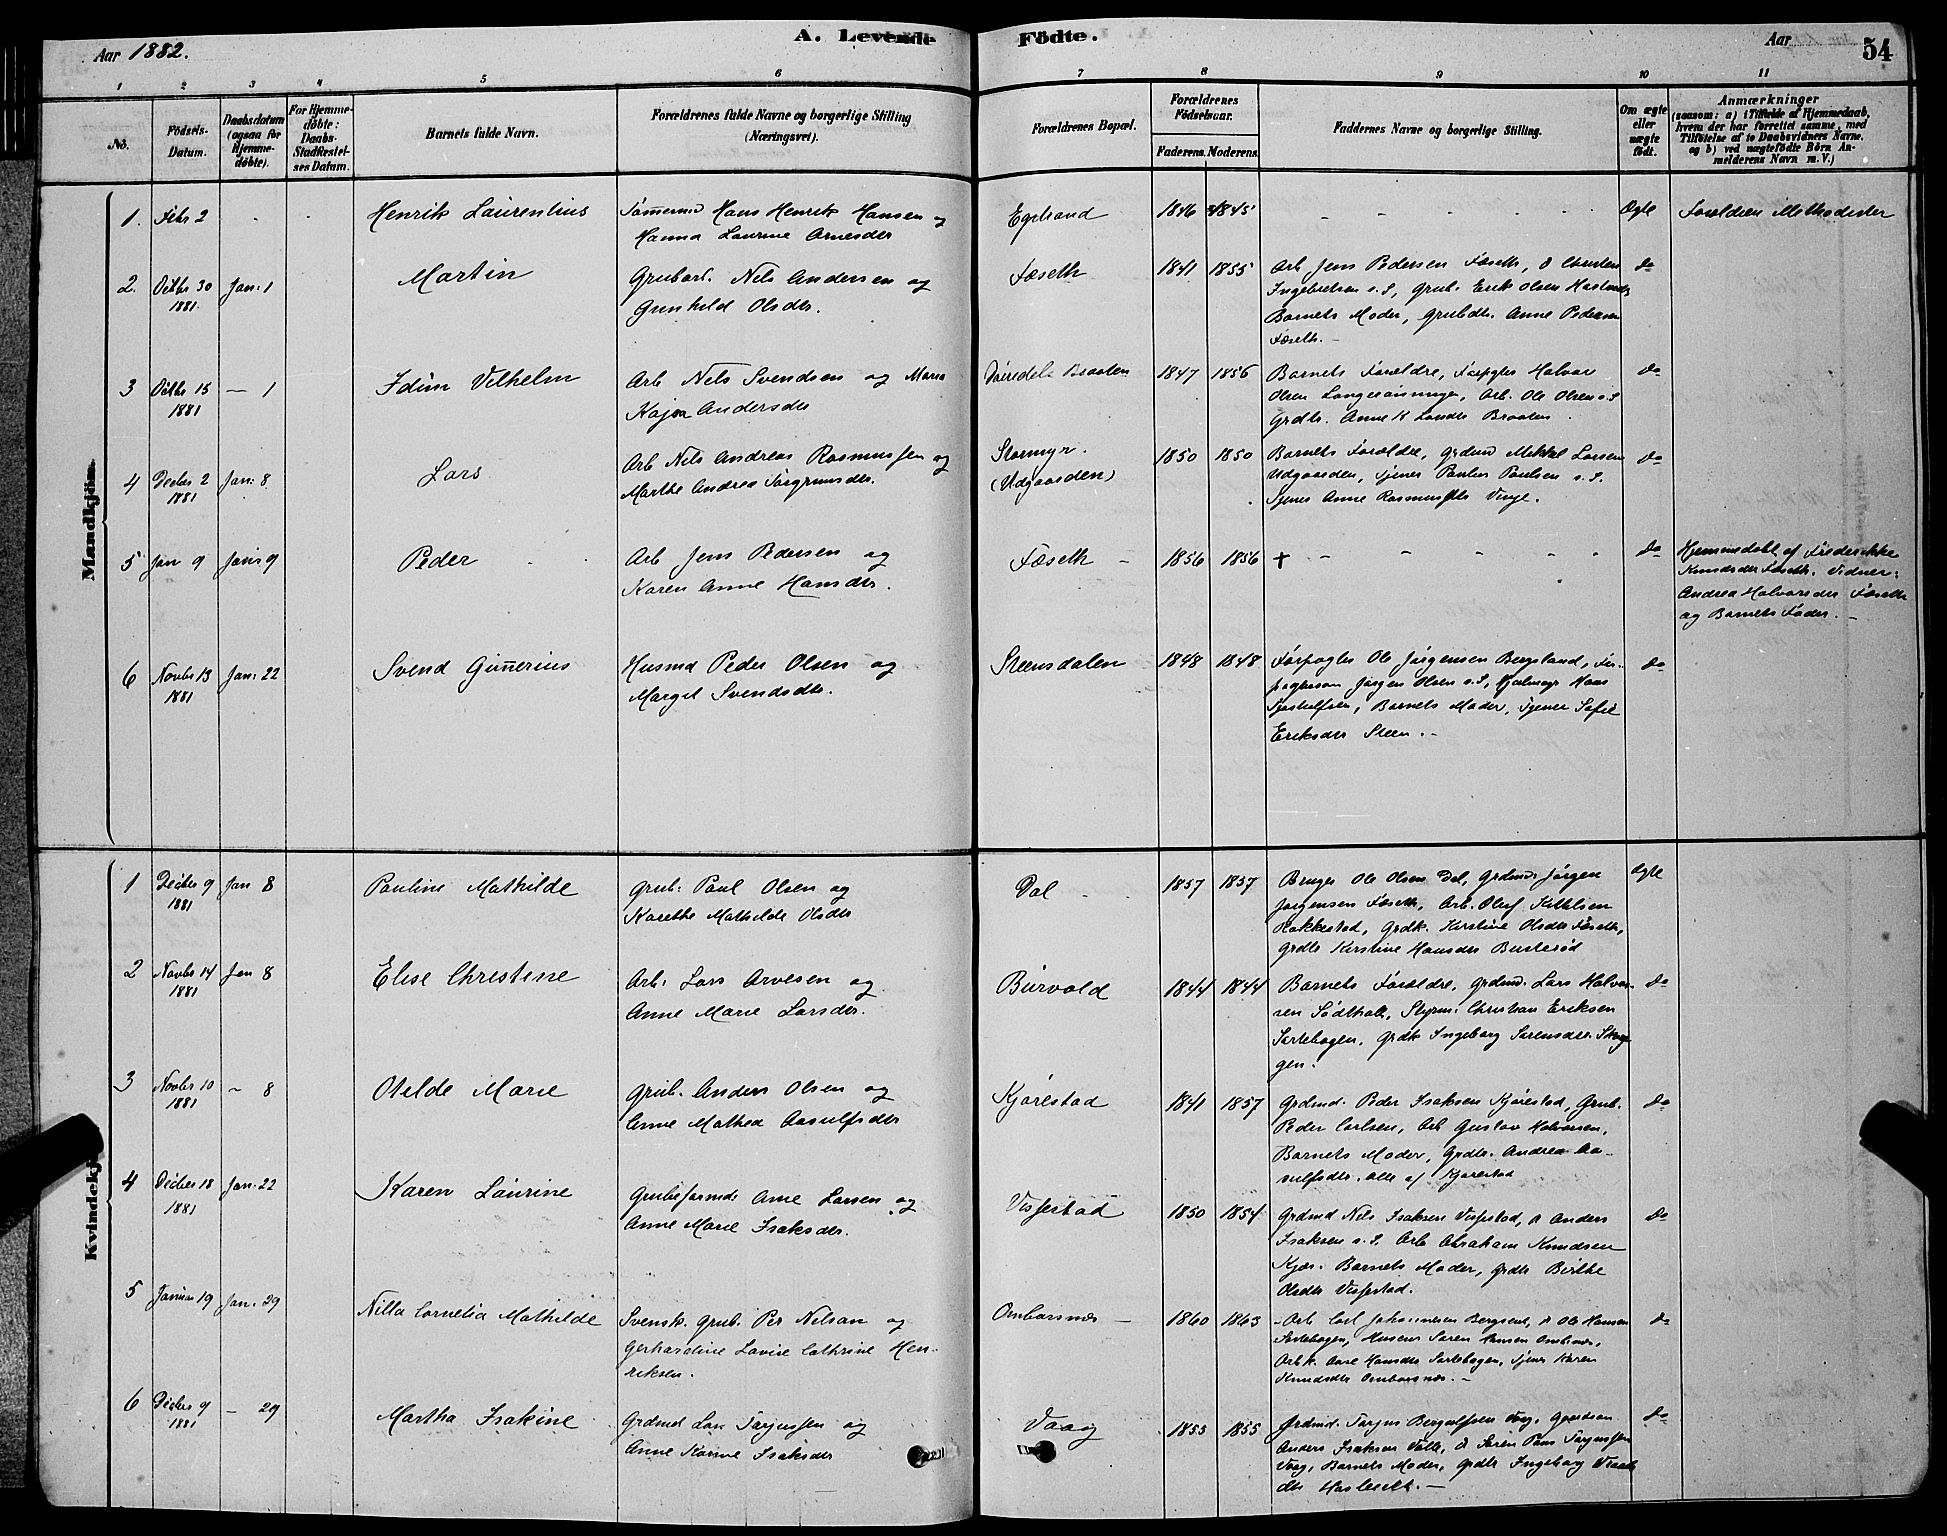 Aar 1882.
A. Levende Födte.
Aar
54
1 2 3 4 5 6 7 8 9 10 11
No.
Födsels-Datum.
Daabsdatum (ogsaa for Hjemme-döbte).
For Hjemme-döbte: Daabs-Stadfæstel-ses Datum.
Barnets fulde Navn.
Forældrenes fulde Navne og borgerlige Stilling (Næringsvei).
Forældrenes Bopæl.
Forældrenes Födselsaar.
Faderens. Moderens.
Faddernes Navne og borgerlige Stilling.
Om ægte eller uægte födt.
Anmærkninger
(saasom: a) i Tilfælde af Hjemmedaab,
hvem der har forrettet samme, med
Tilföielse af to Daabsvidners Navne,
og b) ved uægtefödte Börn An-
melderens Navn m. V.)
Mandkjön.
1. Febr 2 Henrik Laurentius
Tömermd Hans Henrik Hansen og
Hanna Laurine Arnesdtr
Egelsand 1846 1845 Ægte Forældrene Methodister
2. Octbr 30 1881 Jan: 1 Martin
Grubarb. Nils Andersen og
Gunhild Olsdtr.
Fæseth 1841 1855
Arb Jens Pedersen Fæseth, d Christen
Ingebretsen s.S, Grub. Erik Olsen
Barnets Moder, Grubdtr. Anne Pedersen
Fæseth.
do
3 Octbr 15 1881 — 1 Edvin Vilhelm
Arb Nels Svendsen og Maren
Kajsa Andersdtr
Braaten 1847 1856
Barnets Forældre, Forpgter Halvor
Olsen, Arb. Ole Olsen s.S
Grdtr. Anne K Braaten.
do
4 Decbr 2 1881 Jan: 8 Lars
Arb Nils Andreas Rasmussen og
Marthe Andrea Torgrimsdtr.
Stormyr.
(Udgaarden) 1850 1850
Barnets Forældre, Grdmd Mikkel Larsen
Udgaarden, Tjener Paulus Paulsen s.S.
Tjener Anne Rasmusdtr Vinje.
do
5 Jan 9 Jan: 9 Peder
Arb Jens Pedersen og
Karen Anne Hansdtr.
Fæseth 1856 1856 + do
Hjemmedøbt af Frederikke
Knudsdtr Fæseth. Vidner:
Andrea Halvorsdtr Fæseth
og Barnets Fader.
6 Novbr 13 1881 Jan: 22 Svend Gunerius
Husmd Peder Olsen og
Margit Svendsdtr.
Steensdalen 1848 1848
Forpagter Ole Jörgensen Bergsland, For-
pagterson Jörgen Olsen s.S, Hans
Barnets Moder, Tjener Sofie
Eriksdtr Steen.
do
Kvindekj
1 Decbr 9 1881 Jan 8 Pauline Mathilde
Grub: Paul Olsen og
Karethe Mathilde Olsdtr
Dal 1857 1857
Bruger Ole Olsen Dal, Grdmd. Jörgen
Jörgensen Fæseth, Arb. Oluf Kittilsen
Rakkestad, Grdk. Kirstine Olsdtr Fæseth,
Grdtr Kirstine Hansdtr Busteröd
ægte
2 Novbr 14 1881 Jan 8 Elise Christine
Arb: Lars Arvesen og
Anne Marie Larsdtr.
Burvold 1844 1844
Barnets Forældre, Grdmd. Lars Halvor-
sen Södtholt, Styrm: Christian Eriksen
Sartebogen, Grdk Ingeborg Sörensdtr Skov-
gen.
do
3 Novbr 10 1881 – 8 Otilde Marie
Grub. Anders Olsen og
Anne Mathea Aasulfsdtr
Kjörestad 1841 1857
Grdmd. Peder Isaksen Kjörestad, Grub.
Peder Carlsen, Arb Gustav Halvorsen,
Barnets Moder, Grdtr. Andrea Aa-
sulfsdtr. Alle af Kjörestad
do
4 Decbr 18 1881 Jan: 22 Karen Laurine
Grubeformd: Arne Larsen og
Anne Marie Isaksdtr.
Vissestad 1850 1854
Grdmd Nils Isaksen Vissestad, d Anders
Isaksen s.S, Arb Abraham Knudsen
Kjær. Barnets Moder, Grdtr Birthe
Olsdtr Vissestad.
do
5 Januar 19 Jan: 29 Nilla Cornelia Mathilde
Svensk. Grub. Per Nilsan og
Gerhardine Lovise Cathrine Hen-
riksen.
Ombarsnæs 1860 1863
Arb Carl Johannesen, d Ole Hansen
Sartebogen, Sören Hansen
Arbk. Ane Hansdtr Sartebogen, Tjener Karen
Knudsdtr Ombarsnæs.
do
6 Decbr 9 1881 – 29 Martha Isakine
Grdmd Lars Torjussen og
Anne Karine Isaksdtr
Vaag 1855 1855
Grdmd. Torjus Vaag, Gaardson
Anders Isaksen Valle, d Sören Torjussen
Vaag, Barnets Moder, Grdtr Ingeborg
dtr
do